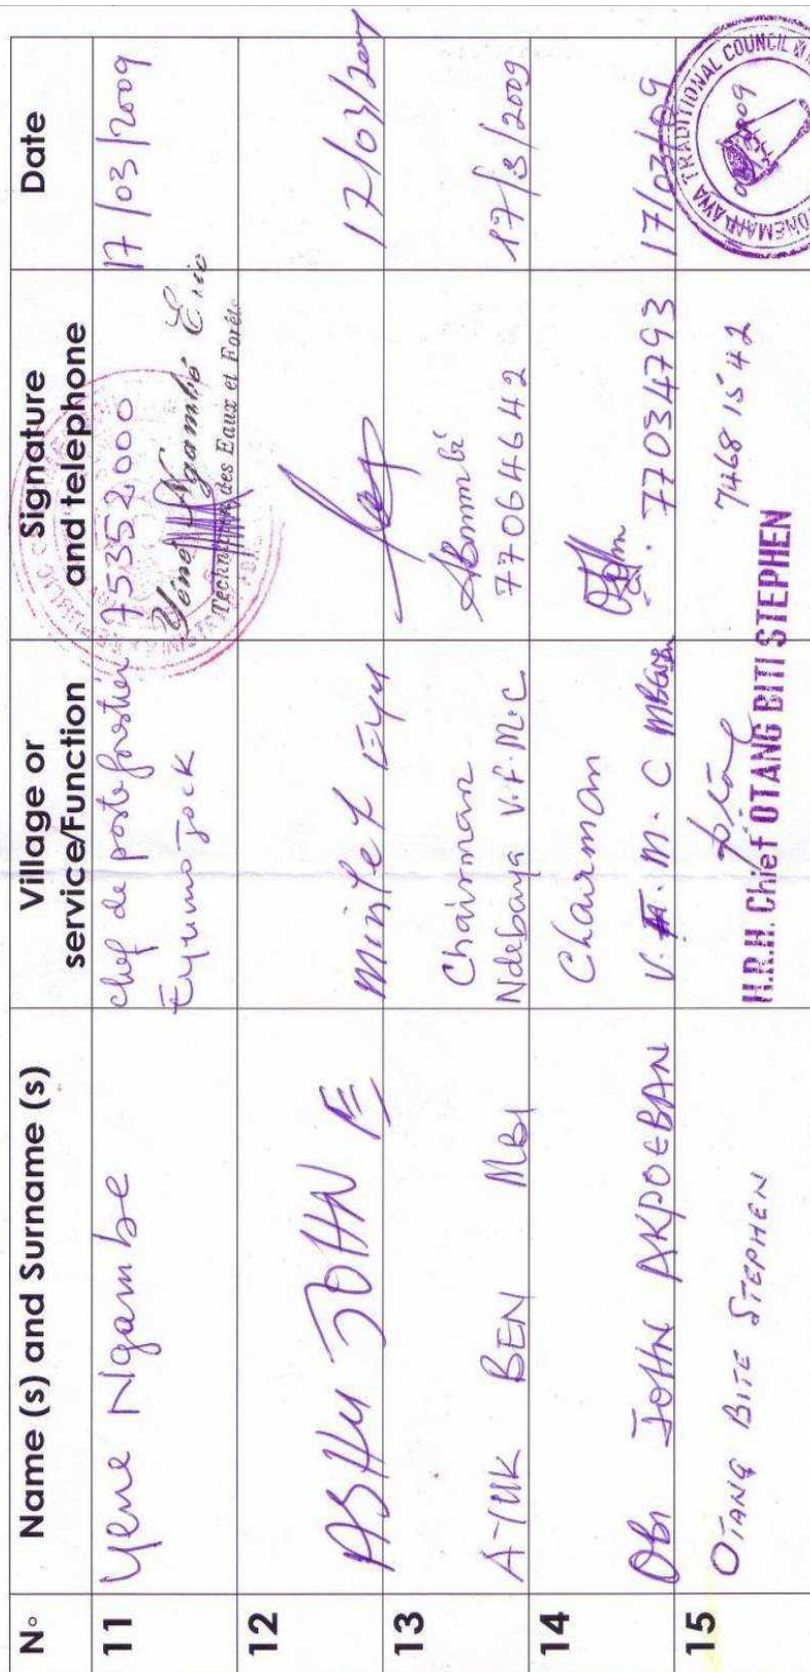 N° Name (s) and Surname (s) Village or service/Function Signature and telephone Date
11 Yene Ngambe chef de poste forestier Eyumojock 75352000 17/03/2009
Yéné Ngambé Eric
Technicien des Eaux et Forêts
REPUBLIC
12 ASHU JOHN E 17/03/2009
13 AYUK BEN MBI Chairman Ndebaya V.F.M.C 77064642 17/3/2009
14 Obi JOHN AKPOEBAN Chairman V.F.M.C 77034793 17/03/09
15 OTANG BITE STEPHEN 74681542
H.R.H. Chief OTANG BITI STEPHEN
TRADITIONAL COUNCIL